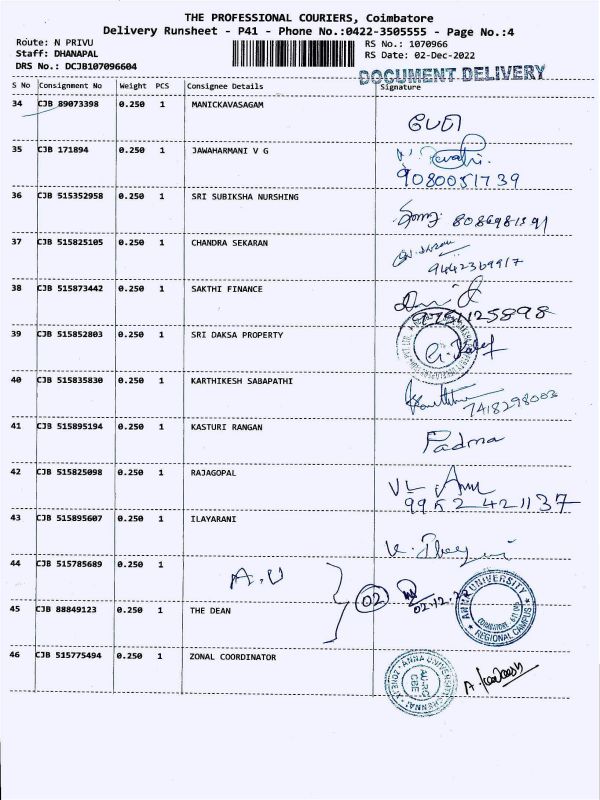 THE PROFESSIONAL COURIERS, Coimbatore
Delivery Runsheet - P41 - Phone No.:0422-3505555 - Page No.:4
Route: N PRIVU RS No.: 1070966
Staff: DHANAPAL RS Date: 02-Dec-2022
DRS No.: DCJB107096604
DOCUMENT DELIVERY
S No Consignment No Weight PCS Consignee Details Signature
34 CJB 89073398 0.250 1 MANICKAVASAGAM
35 CJB 171894 0.250 1 JAWAHARMANI V G
9080051739
36 CJB 515352958 0.250 1 SRI SUBIKSHA NURSHING
37 CJB 515825105 0.250 1 CHANDRA SEKARAN
9442369917
38 CJB 515873442 0.250 1 SAKTHI FINANCE
39 CJB 515852803 0.250 1 SRI DAKSA PROPERTY
40 CJB 515835830 0.250 1 KARTHIKESH SABAPATHI
7418298003
41 CJB 515895194 0.250 1 KASTURI RANGAN
Padma
42 CJB 515825098 0.250 1 RAJAGOPAL
43 CJB 515895607 0.250 1 ILAYARANI
44 CJB 515785689 0.250 1
A.U
02
02.12.2
45 CJB 88849123 0.250 1 THE DEAN
ANNA UNIVERSITY
REGIONAL CAMPUS
46 CJB 515775494 0.250 1 ZONAL COORDINATOR